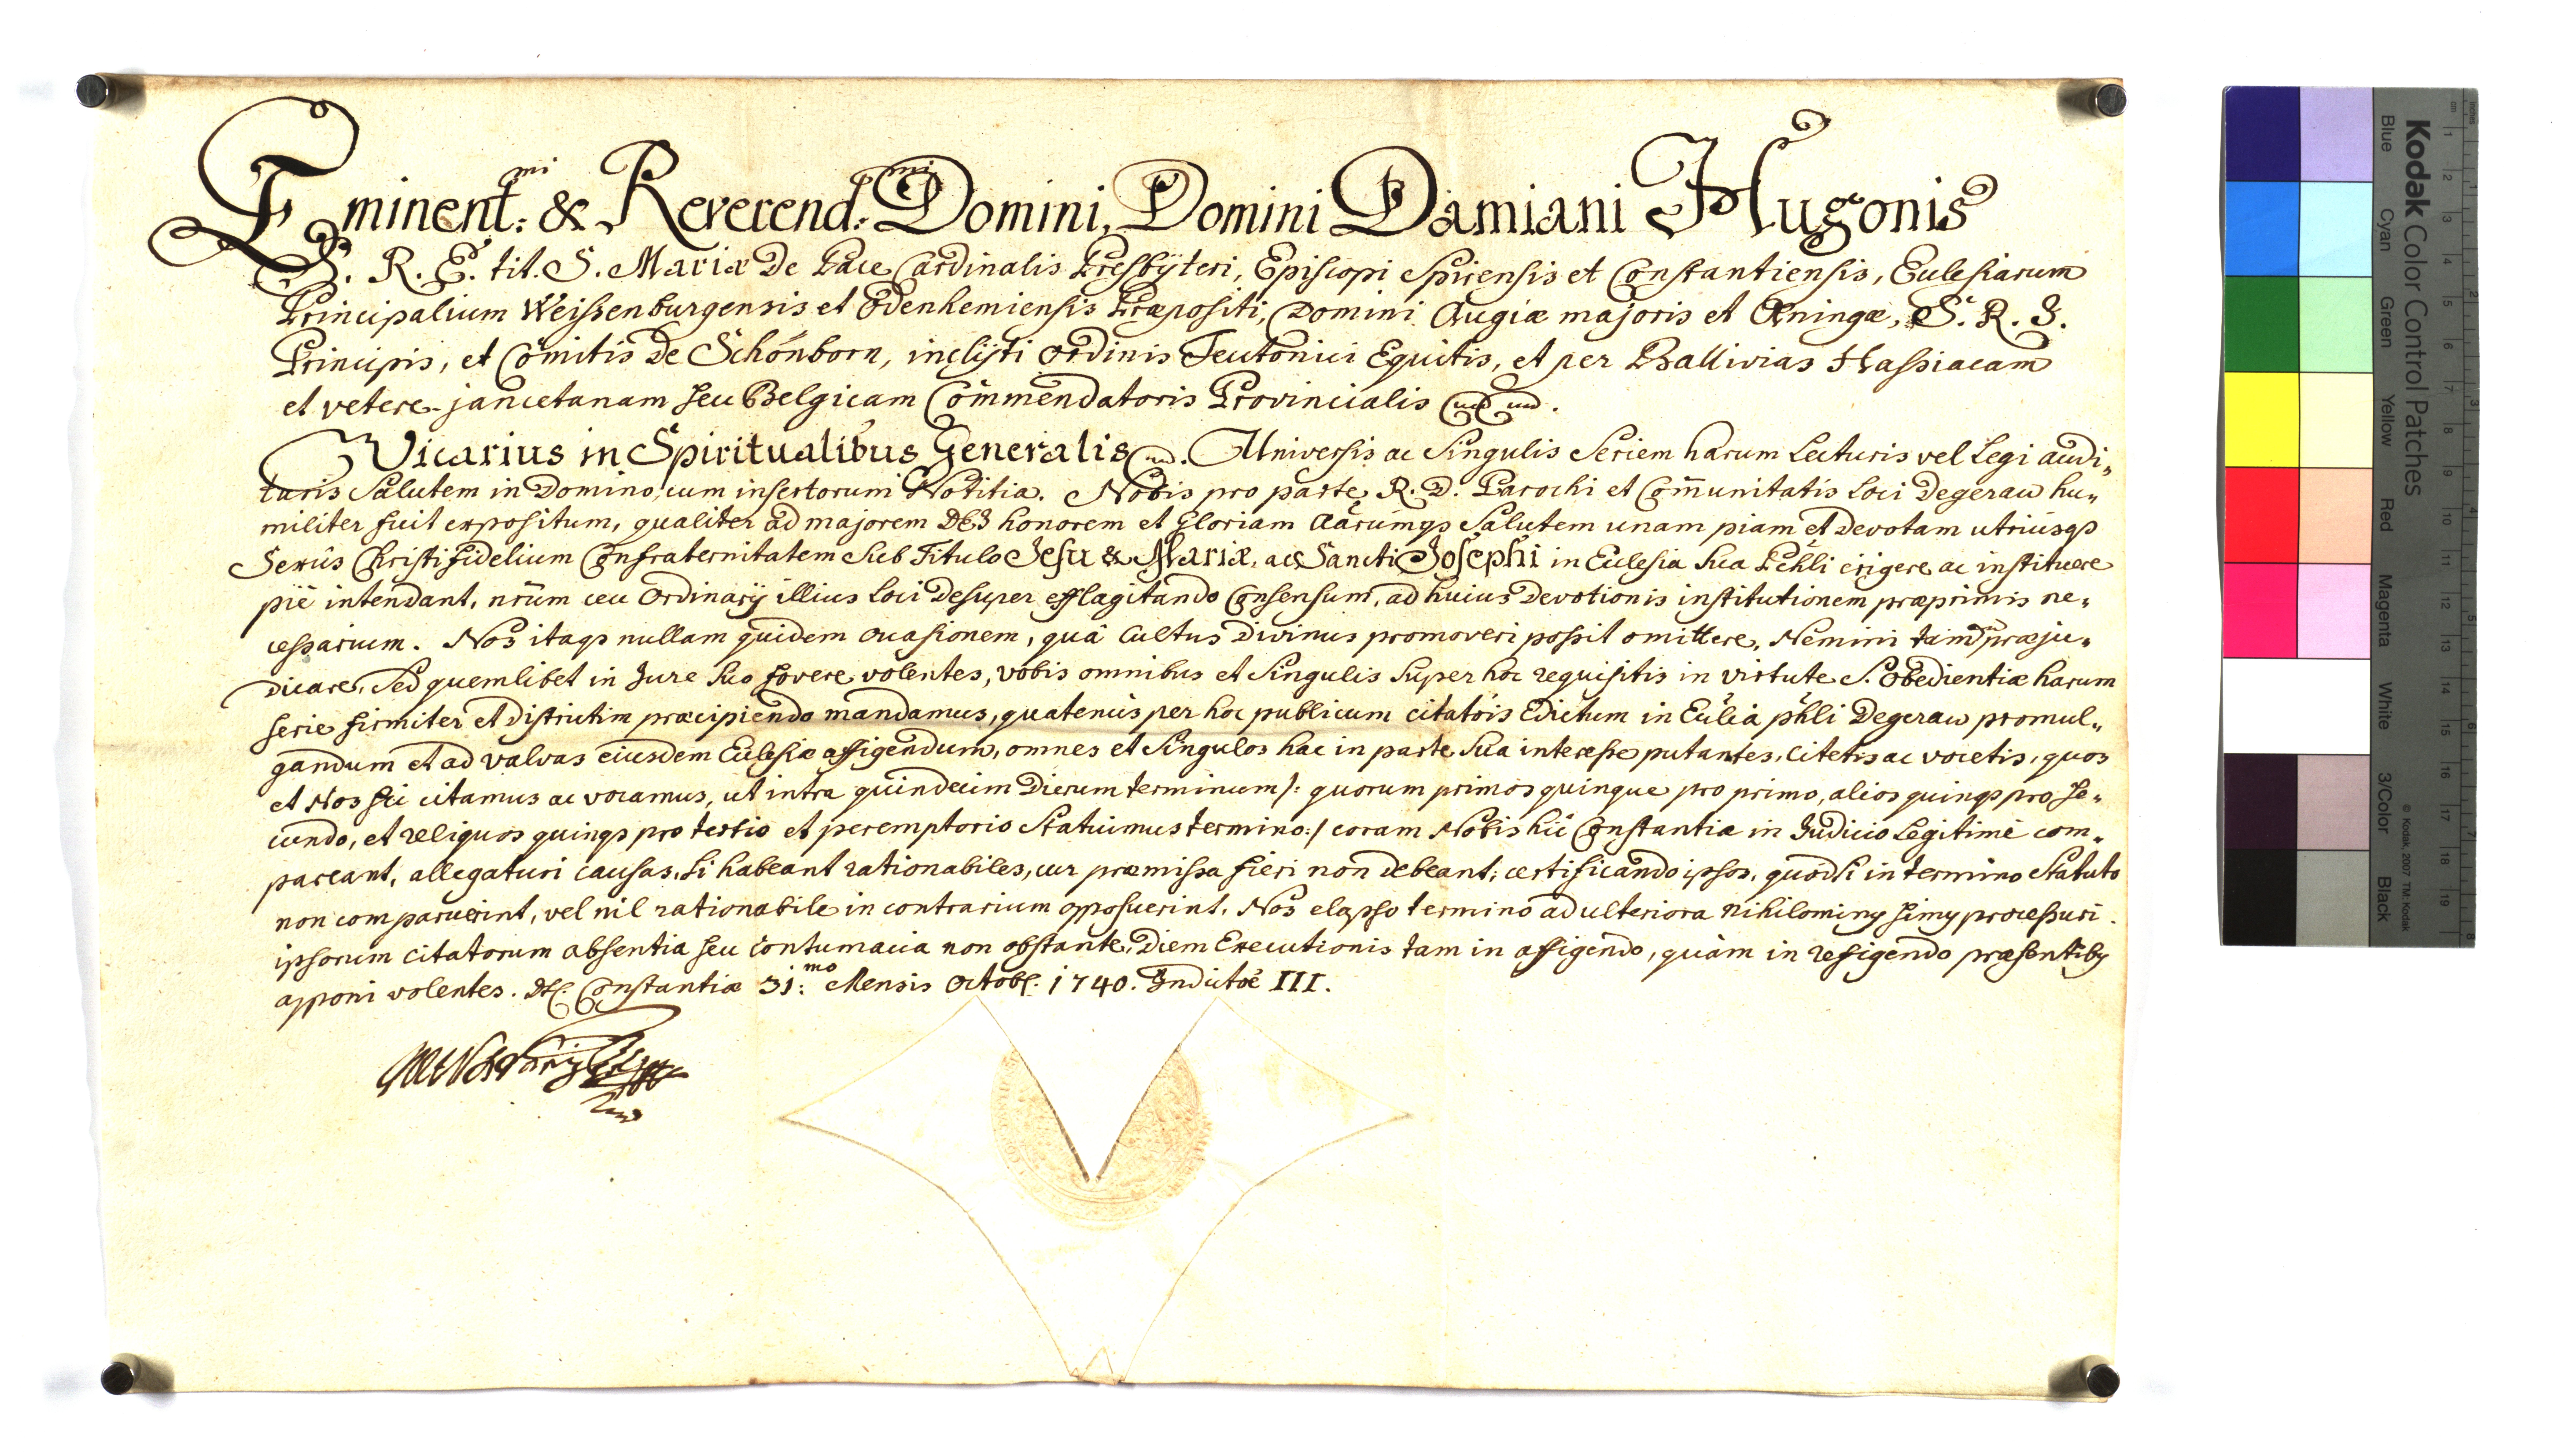 Eminent:mi & Reverend:mi Domini, Domini Damiani Hugonis
S. R. E. tit. S. Mariæ De Pace Cardinalis Presbÿteri, Episcopi Spirensis et Constantiensis, Ecclesiarum
Principalium Weissenburgensis et Odenhemiensis Præpositi, Domini Augiæ majoris et Œningæ, S. R. I.
Principis, et Comitis de Schönborn, inclÿti ordinis Teutonici Equitis, et per Ballivias Hassiacam
et vetere-juncetanam seu Belgicam Commendatoris Provincialis
Vicarius in Spiritualibus Generalis Universis ac Singulis Seriem harum Lecturis vel Legi audi„
turis Salutem in Domino, cum insertorum Notitia. Nobis pro parte R. D. Parochi et Com̄unitatis Loci Degerau hu„
militer fuit expositum, qualiter ad majorem DEI honorem et Gloriam aãrumq3 Salutem unam piam et Devotam utriusq3
Sexûs Christi Fidelium Confraternitatem Sub Titulo Jesu & Mariæ, ac Sancti Josephi in Ecclesia sua Pchli erigere ac instituere
piè intendant, nrũm ceu Ordinarÿ illius Loci Desuper efflagitando Consensum, ad huius Devotionis institutionem præprimis ne„
cessarium. Nos itaq3 nullam quidem occasionem, quâ Cultus Divinus promoveri possit omittere, Nemini tamẽ præju„
dicare, Sed quemlibet in Jure Suo fovere volentes, vobis omnibus et Singulis Super hoc requisitis in virtute S. Obedientiæ harum
serie firmiter et Districtim præcipiendo mandamus, quatenùs per hoc publicum citatõis Edictum in Ecclĩa pchli Degerau promul„
gandum et ad valvas eiusdem Ecclesiæ affigendum, omnes et Singulos hac in parte Sua interesse putantes, citetis ac vocetis, quos
et Nos sic citamus ac vocamus, ut intra quindecim Dierum terminum /: quorum primos quinque pro primo, alios quinq3 pro se„
cundo, et reliquos quinq3 pro tertio et peremptorio Statuimus termino :/ coram Nobis hìc Constantiæ in Judicio Legitimè com„
pareant, allegaturi causas, si habeant rationabiles, cur præmissa fieri non debeant; certificando ipsos, quòd si in termino Statuto
non comparuerint, vel nil rationabile in contrarium opposuerint, Nos elapso termino ad ulteriora nihilominq simq processuri.
ipsorum citatorum absentia seu contumacia non obstante, Diem Executionis tam in affigendo, quàm in refigendo præsentibq
apponi volentes. Dt. Constantiæ 31:mo Mensis Octob: 1740. Indictõe III.
Kodak Color Control Patches
Blue Cyan Green Yellow Red Magenta White 3/Color Black
© Kodak, 2007 TM: Kodak
cm 1 2 3 4 5 6 7 8 9 10 11 12 13 14 15 16 17 18 19
inches 1 2 3 4 5 6 7 8